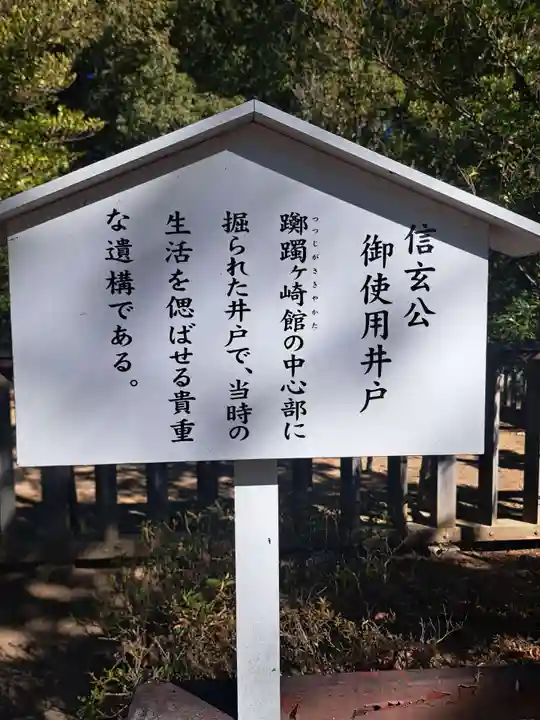 信玄公
御使用井戸
つつじがさきやかた
躑躅ヶ崎館の中心部に
掘られた井戸で、当時の
生活を偲ばせる貴重
な遺構である。